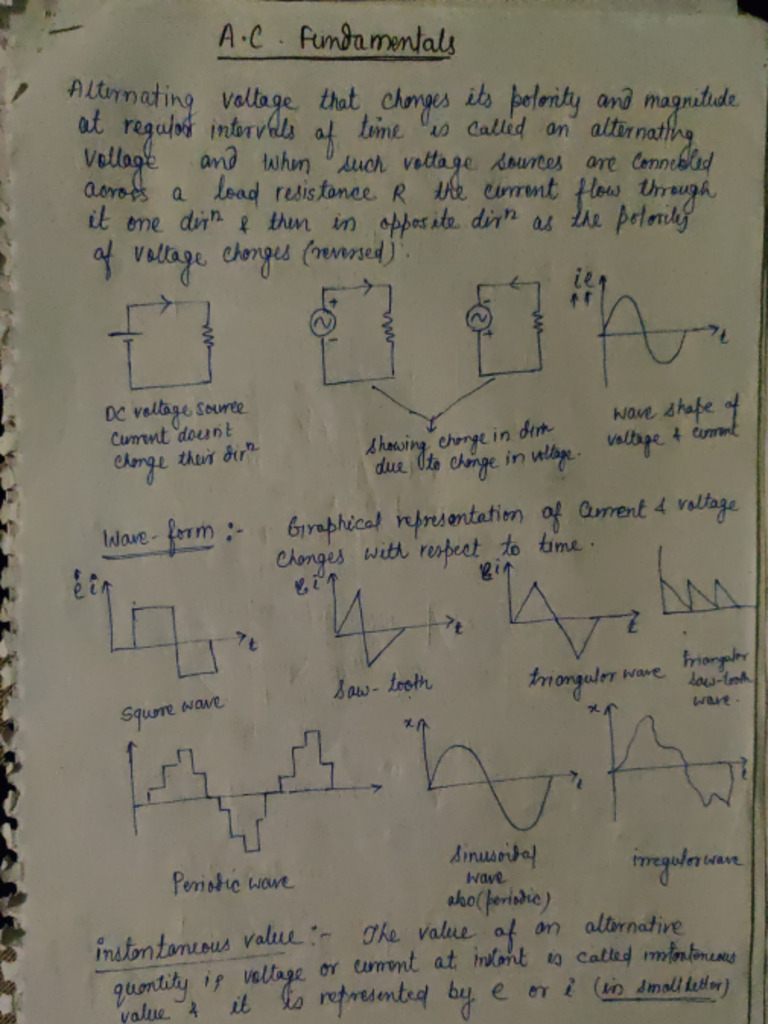 A.C. Fundamentals
Alternating voltage that changes its polority and magnitude
at regular intervals of time is called an alternating
voltage and when such voltage sources are connected
across a load resistance R the current flow through
it one dirⁿ & then in opposite dirⁿ as the polority
of voltage changes (reversed).
i e
t
DC voltage source
current doesn't
change their dirⁿ
+
-
-
+
showing change in dirn
due to change in voltage.
wave shape of
voltage & current
Wave-form :- Graphical representation of current & voltage
changes with respect to time.
e i
t
e i
t
e i
t
Square wave
Saw-tooth
triangular wave
triangular
saw-tooth
wave.
x
t
x
t
Periodic wave
Sinusoidal
wave
also (periodic)
irregular wave
instantaneous value :- The value of an alternative
quantity ie voltage or current at instant is called instantaneous
value & it is represented by e or i (in small letter)